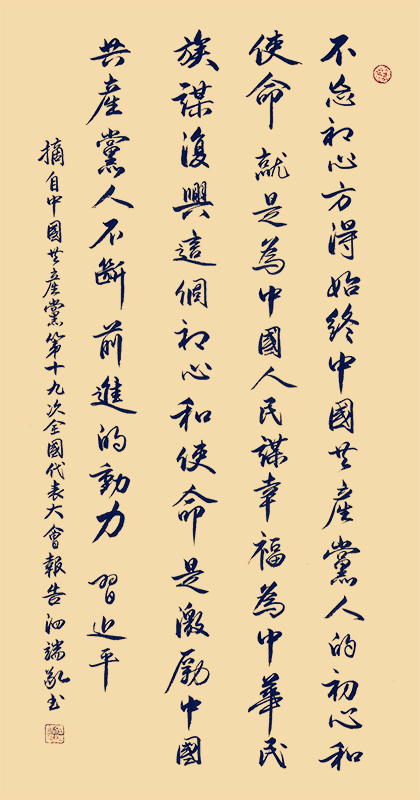 不忘初心方得始終中國共產黨人的初心和
使命就是為中國人民謀幸福為中華民
族謀復興這個初心和使命是激勵中國
共產黨人不斷前進的動力 習近平
摘自中國共產黨第十九次全國代表大會報告泗端敬书